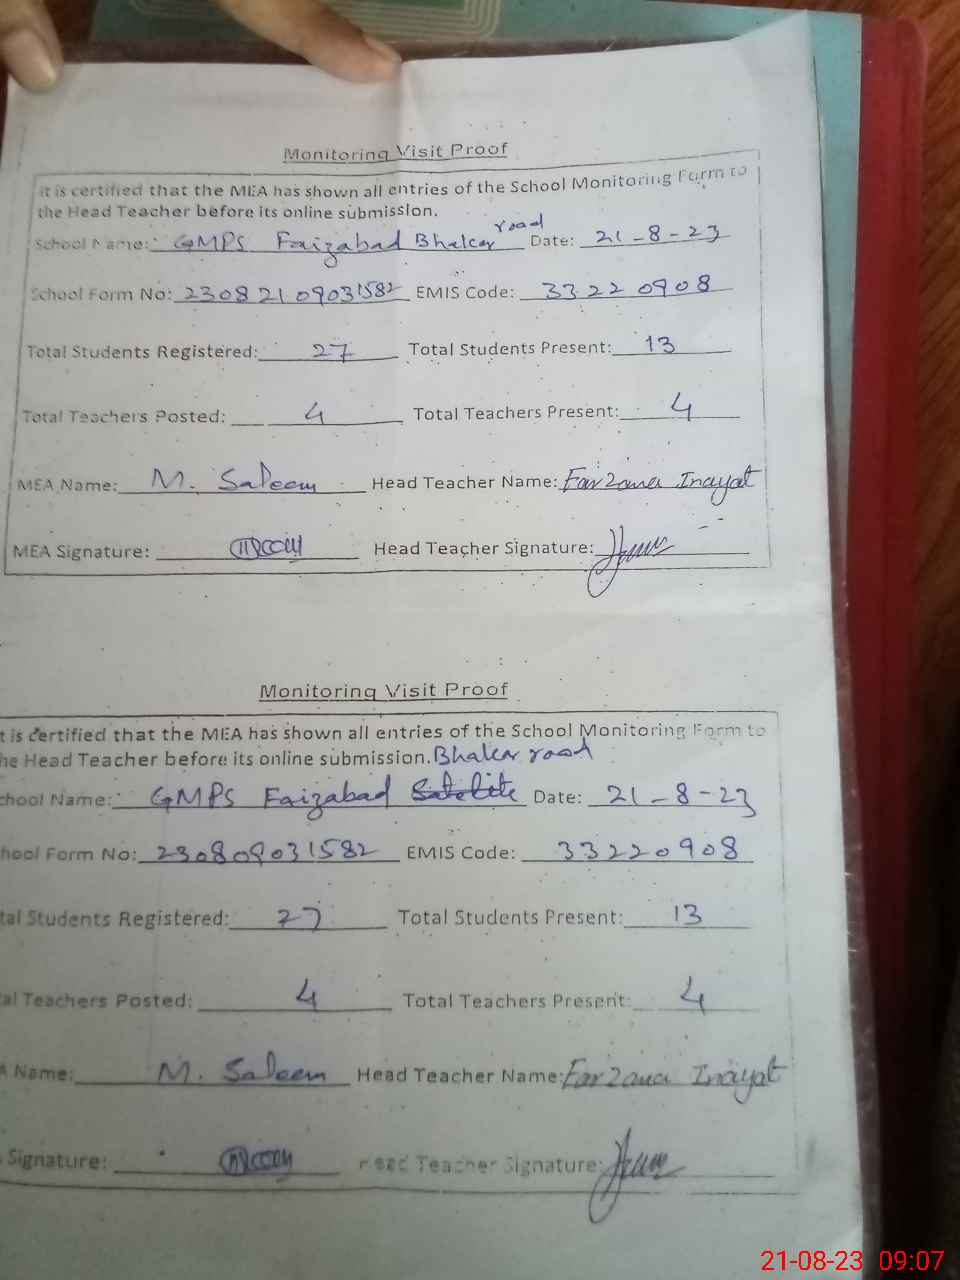 Monitoring Visit Proof
It is certified that the MEA has shown all entries of the School Monitoring Form to
the Head Teacher before its online submission.
road
School Name: GMPS Faizabad Bhaker Date: 21-8-23
School Form No: 23082109031582 EMIS Code: 33220908
Total Students Registered: 27 Total Students Present: 13
Total Teachers Posted: 4 Total Teachers Present: 4
MEA Name: M. Saleem Head Teacher Name: Farzana Inayat
MEA Signature: Head Teacher Signature:
Monitoring Visit Proof
t is certified that the MEA has shown all entries of the School Monitoring Form to
he Head Teacher before its online submission. Bhaker road
chool Name: GMPS Faizabad Satelite Date: 21-8-23
hool Form No: 230809031582 EMIS Code: 33220908
tal Students Registered: 27 Total Students Present: 13
al Teachers Posted: 4 Total Teachers Present: 4
A Name: M. Saleem Head Teacher Name: Farzana Inayat
Signature: Head Teacher Signature:
21-08-23 09:07